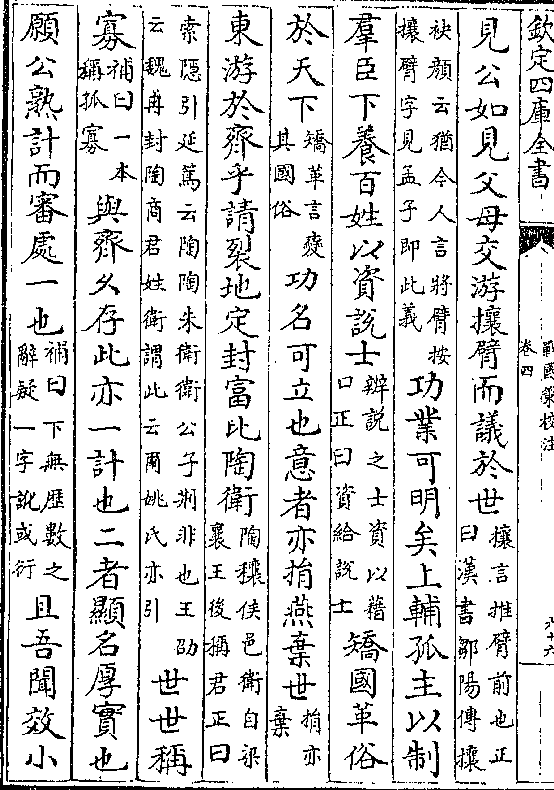 欽定四庫全書
戰國策校注
卷四
六十六
見公如見父母交游攘臂而議於世攘言推臂前也正曰漢書鄒陽傳攘
袂顔云猶今人言將臂按攘臂字見孟子即此義功業可明矣上輔孤主以制
羣臣下養百姓以資說士辨說之士資以藉口正曰資給說士矯國革俗
於天下矯革言變其國俗功名可立也意者亦捐燕棄世捐亦棄
東游於齊乎請裂地定封富比陶衛陶穰侯邑衛自梁襄王後稱君正曰
索隱引延篤云陶陶朱衛衛公子荆非也王劭云魏冉封陶商君姓衛謂此云爾姚氏亦引世世稱
寡補曰一本稱孤寡與齊久存此亦一計也二者顯名厚實也
願公熟計而審處一也補曰下無歷數之辭疑一字訛或衍且吾聞效小